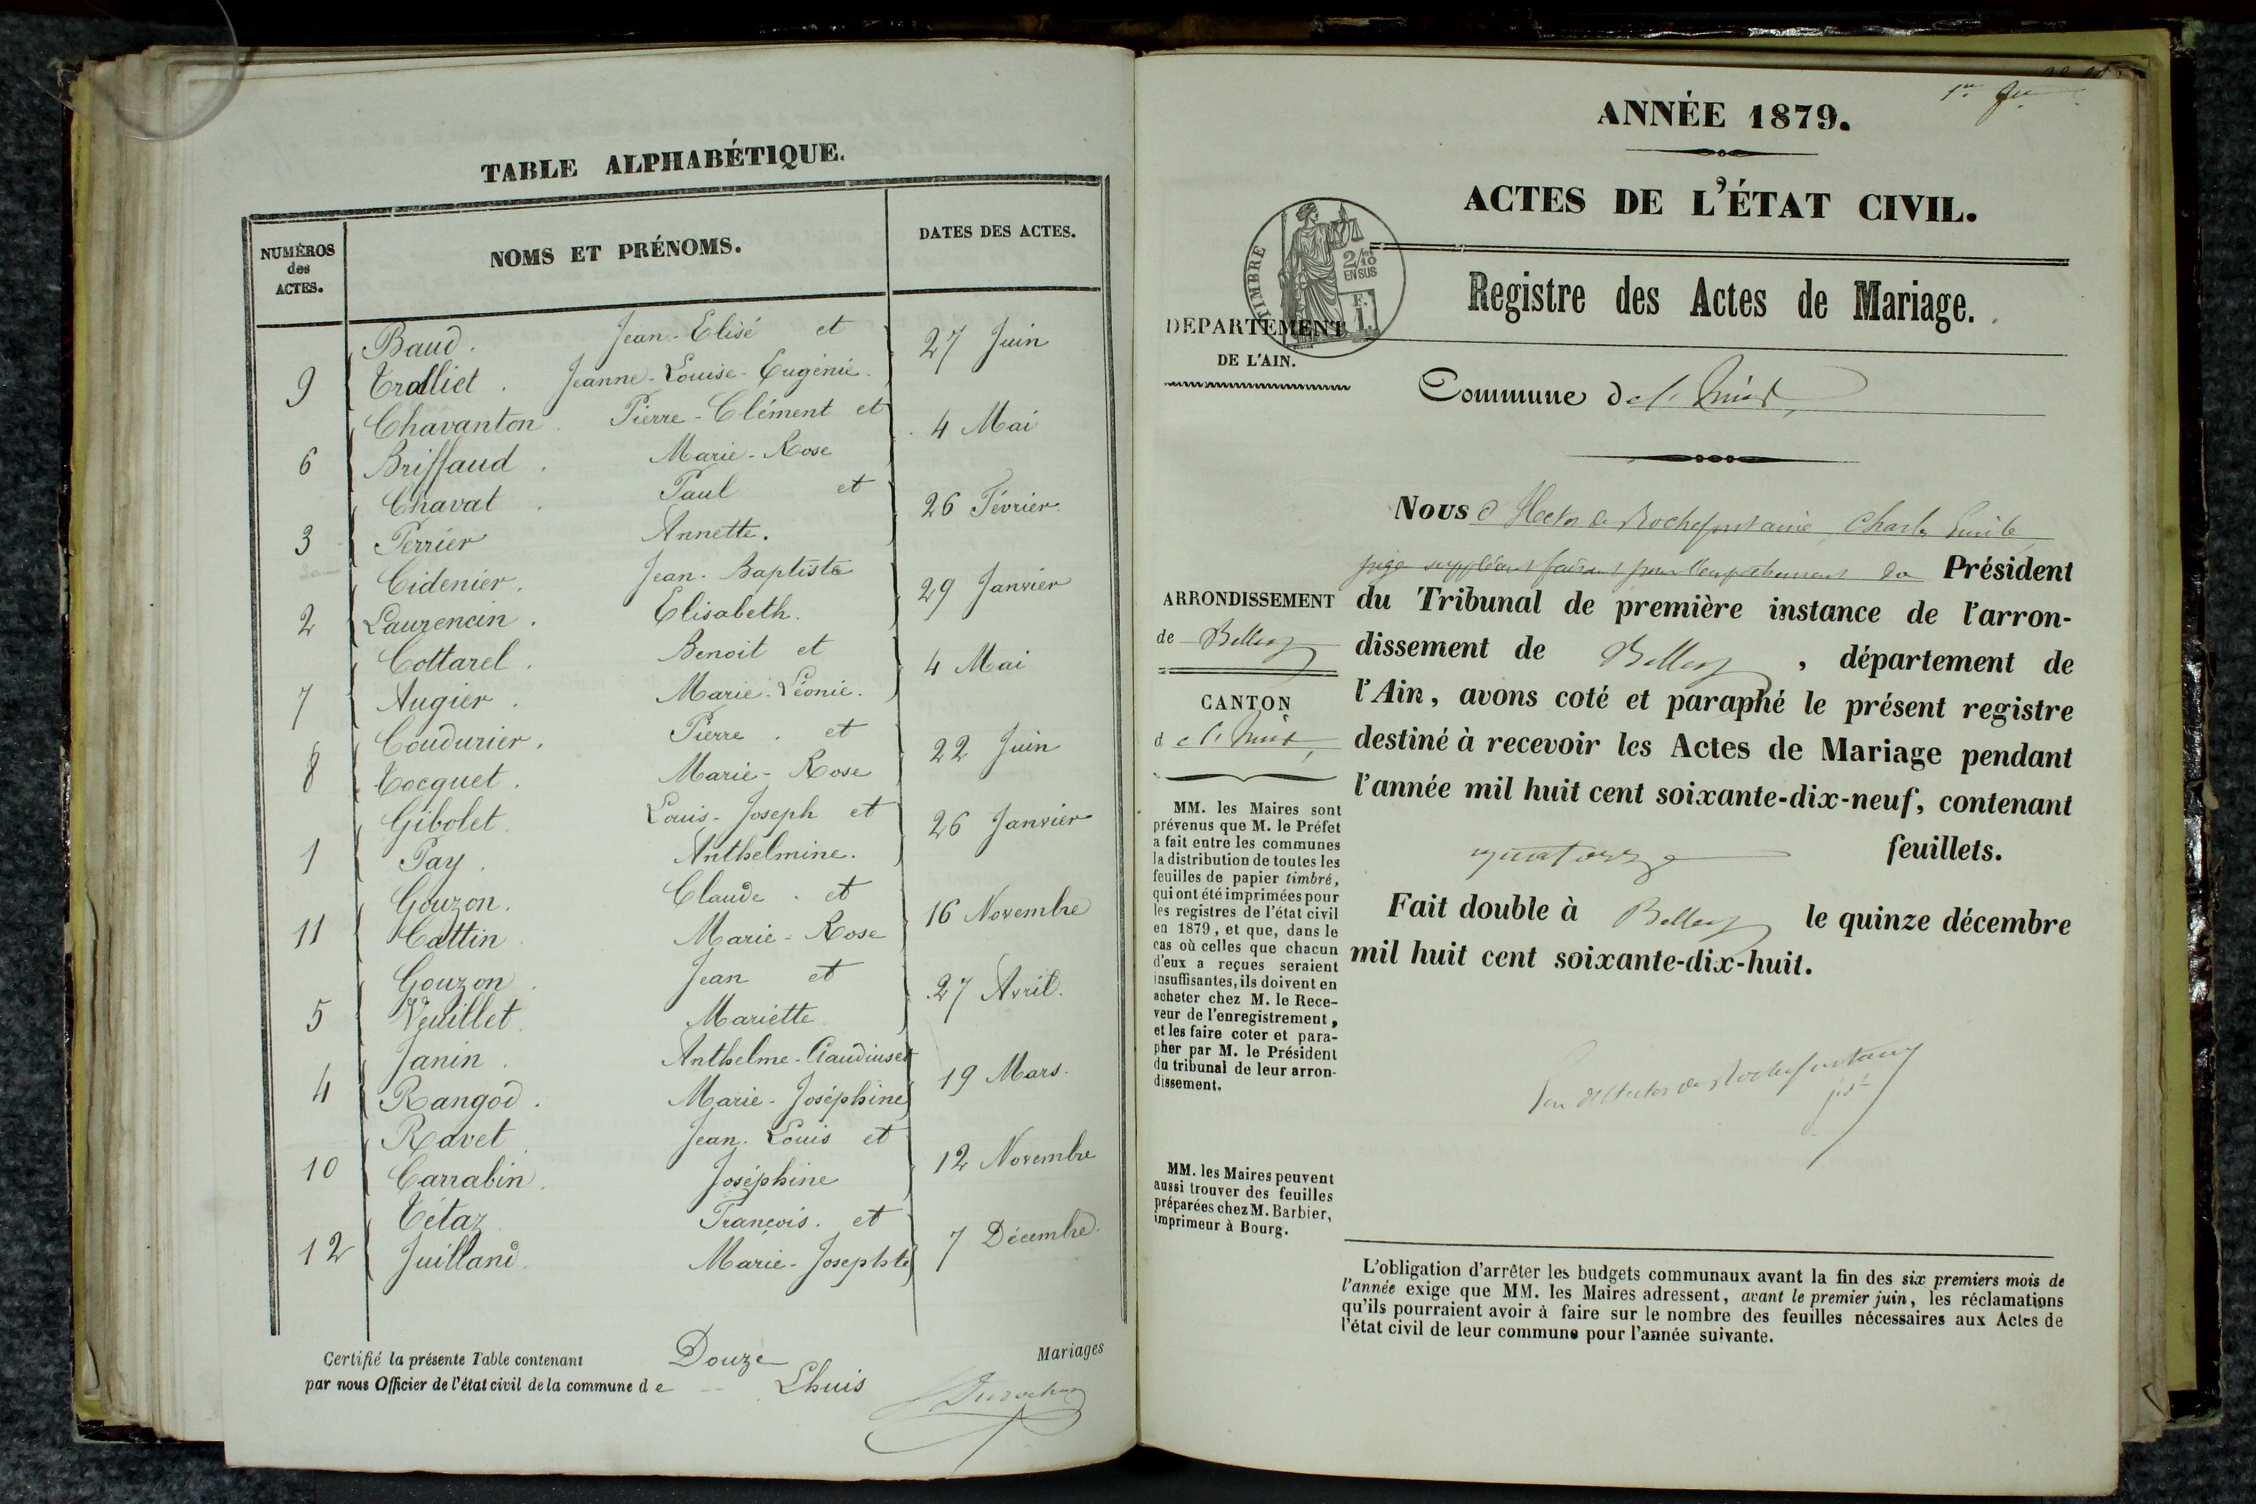 TABLE ALPHABÉTIQUE.
NUMÉROS
des
ACTES.
NOMS ET PRÉNOMS.
DATES DES ACTES.
Baud. Jean-Elisé et
9 Trolliet. Jeanne-Louise-Eugénie. 27 Juin
Chavanton. Pierre-Clément et
6 Briffaud. Marie-Rose 4 Mai
Chavat. Paul et
3 Perrier Annette. 26 Février.
Cidenier. Jean-Baptiste
2 Laurencin. Elisabeth. 29 Janvier
Cottarel. Benoit et
7 Augier. Marie-Léonie. 4 Mai
Coudurier. Pierre. et
8 Tocquet. Marie-Rose 22 Juin
Gibolet. Louis-Joseph et
1 Pay. Anthelmine. 26 Janvier
Gouzon. Claude. et
11 Cattin. Marie-Rose 16 Novembre
Gouzon. Jean et
5 Veuillet. Mariette 27 Avril.
Janin. Anthelme-Claudius et
4 Rangod. Marie-Joséphine 19 Mars.
Ravet. Jean-Louis et
10 Carrabin. Joséphine 12 Novembre
Tétaz. François. et
12 Juilland. Marie-Josephte 7 Décembre.
Certifié la présente Table contenant Douze Mariages
par nous Officier de l'état civil de la commune de Lhuis
1er
ANNÉE 1879.
ACTES DE L'ÉTAT CIVIL.
TIMBRE
2/10
EN SUS
F.
1.
Registre des Actes de Mariage.
DEPARTEMENT
DE L'AIN.
Commune de Lhuis
ARRONDISSEMENT
de Belley
CANTON
de Lhuis
MM. les Maires sont
prévenus que M. le Préfet
a fait entre les communes
la distribution de toutes les
feuilles de papier timbré,
qui ont été imprimées pour
les registres de l'état civil
en 1879, et que, dans le
cas où celles que chacun
d'eux a reçues seraient
insuffisantes, ils doivent en
acheter chez M. le Rece-
veur de l'enregistrement,
et les faire coter et para-
pher par M. le Président
du tribunal de leur arron-
dissement.
MM. les Maires peuvent
aussi trouver des feuilles
préparées chez M. Barbier,
imprimeur à Bourg.
Nous d'Hector de Rochefontaine, Charles Emile
juge suppléant faisant pour l'empêchement du Président
du Tribunal de première instance de l'arron-
dissement de Belley, département de
l'Ain, avons coté et paraphé le présent registre
destiné à recevoir les Actes de Mariage pendant
l'année mil huit cent soixante-dix-neuf, contenant
quatorze feuillets.
Fait double à Belley le quinze décembre
mil huit cent soixante-dix-huit.
d'Hector de Rochefontaine
L'obligation d'arrêter les budgets communaux avant la fin des six premiers mois de
l'année exige que MM. les Maires adressent, avant le premier juin, les réclamations
qu'ils pourraient avoir à faire sur le nombre des feuilles nécessaires aux Actes de
l'état civil de leur commune pour l'année suivante.